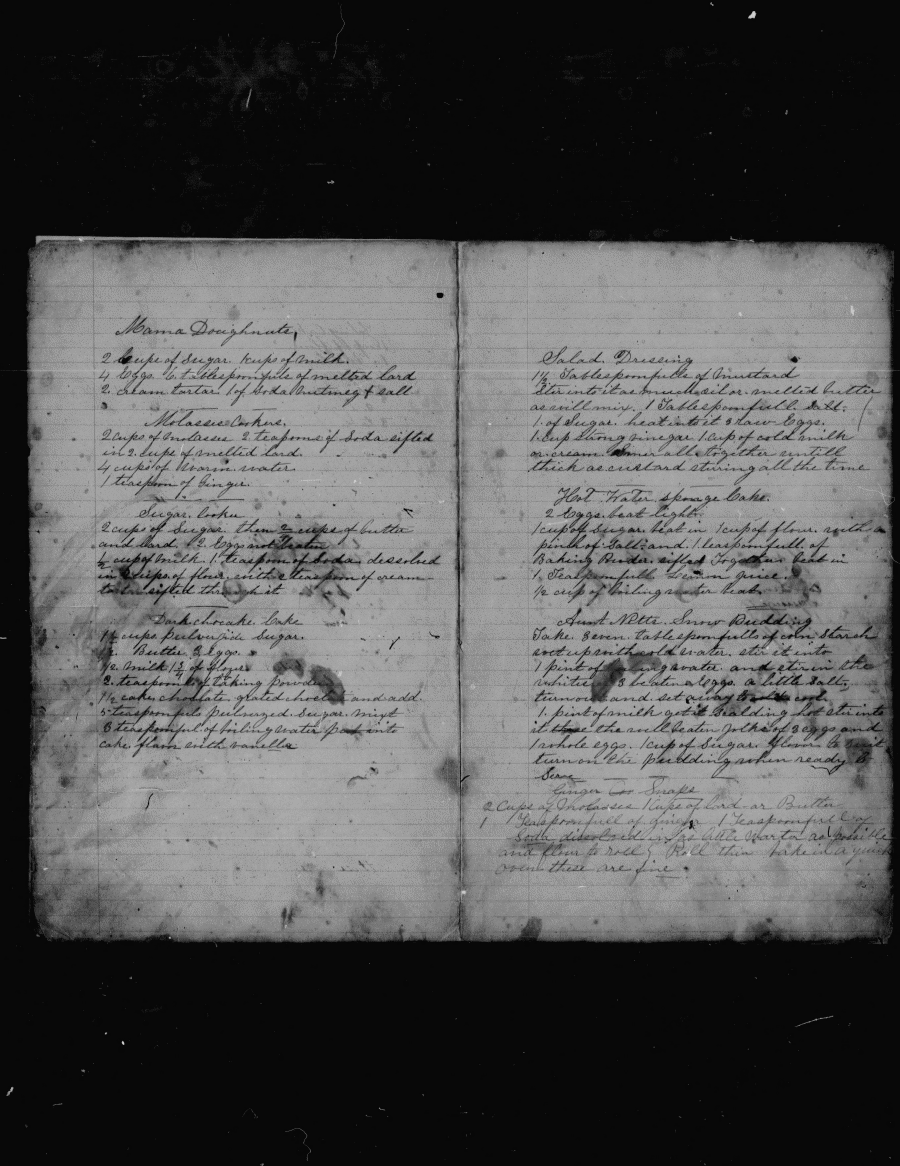 Mama Doughnuts,
2 Cups of Sugar. 1 cups of milk.
4 Eggs. 6. tablespoonfuls of melted lard
2. cream tartar. 1 of Soda Nutmeg & salt
Molasses Cookies.
2 cups of Molasses 2 teaspoons of Soda sifted
in 2. cups of melted lard.
4 cups of warm water
1 teaspoon of Ginger.
Sugar. Cookie
2 cups of Sugar. then 2 cups of butter
and lard. 2. Eggs not beaten
1/2 cup of milk. 1. teaspoon of Soda. desolved
in cups of flour. with 2 teaspoon of cream
to be sifted through it.
Dark chocake Cake
1 1/2 cups pulverside Sugar.
1/2. Butter 3 Eggs.
1/2. milk 1 3/4 of flour
2. teaspoonfuls of baking powder
1 1/2 cake chocolate. grated and add
5 teaspoonfuls pulverized Sugar. mixt
3 teaspoonful of boiling water put into
cake flavor with vanilla
Salad. Dressing
1 1/2 Tablespoonfulls of Mustard
Stir into it as much oil or. melted butter
as will mix. 1 Tablespoonfull. Salt.
1. of Sugar. beat into it 3 raw Eggs.
1. cup strong vinegar 1 cup of cold milk
or cream. Simer all together untill
thick as custard stiring all the time
Hot Water sponge Cake.
2 Eggs. beat light.
1 cup of Sugar. beat in 1 cup of flour. with a
pinch of Salt. and. 1 teaspoonfull. of
Baking Powder. sifted Together beat in
1 Teaspoonfull Lemon juice.
1/2 cup of boiling water beat.
Aunt Netts. Snow Pudding
Take. 3 even. tablespoonfulls of corn Starch
wet up with cold water. stir it into
1 pint of boiling water. and stir in the
whites 3 beaten Eggs. a little Salt,
turn out and set away to cool
1. pint of milk get it scalding hot stir into
it the well beaten yolks of 3 eggs and
1 whole eggs. 1 cup of Sugar. flavor to suit
turn on the pudding when ready to
Serve
Ginger Snaps
2 Cups of Molasses 1 Cups of lard or Butter
1 Teaspoonfull of ginger 1 Teaspoonfull of
Soda dissolved in as little warter as possible
and flour to roll Roll thin bake in a quick
oven these are fine.